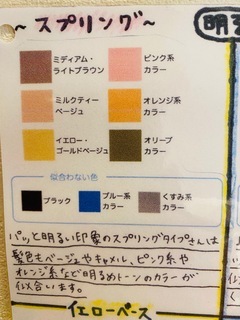 ～スプリング～
明る
ミディアム・
ライトブラウン
ピンク系
カラー
ミルクティー
ベージュ
オレンジ系
カラー
イエロー・
ゴールドベージュ
オリーブ
カラー
似合わない色
ブラック
ブルー系
カラー
くすみ系
カラー
パッと明るい印象のスプリングタイプさんは
髪色もベージュやキャメル、ピンク系や
オレンジ系など明るめトーンのカラーが
似合います。
イエローベース